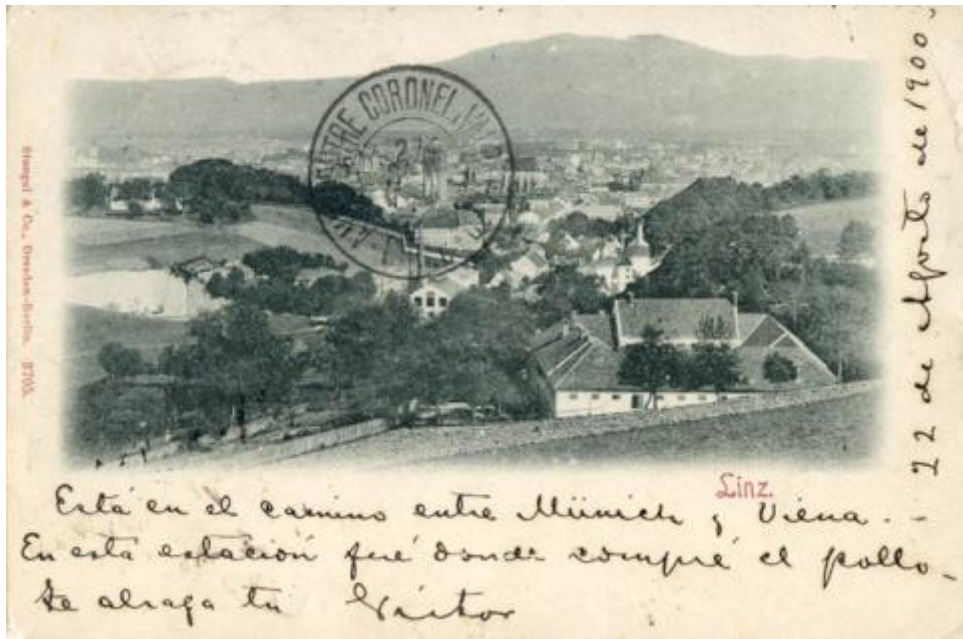 Stengel & Co., Dresden-Berlin. 2705.
ENTRE CORONEL
Linz.
22 de Agosto de 1900.
Está en el camino entre Münich y Viena. -
En está estación fué donde compré el pollo -
te abraga tu Victor